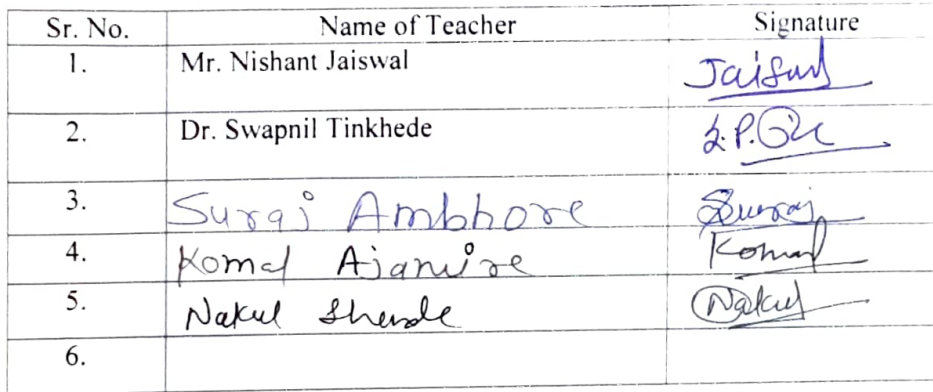 Sr. No. Name of Teacher Signature
1. Mr. Nishant Jaiswal Jaiswal
2. Dr. Swapnil Tinkhede S.P.
3. Suraj Ambhore Suraj
4. Komal Ajamire Komal
5. Nakul Shende Nakul
6.